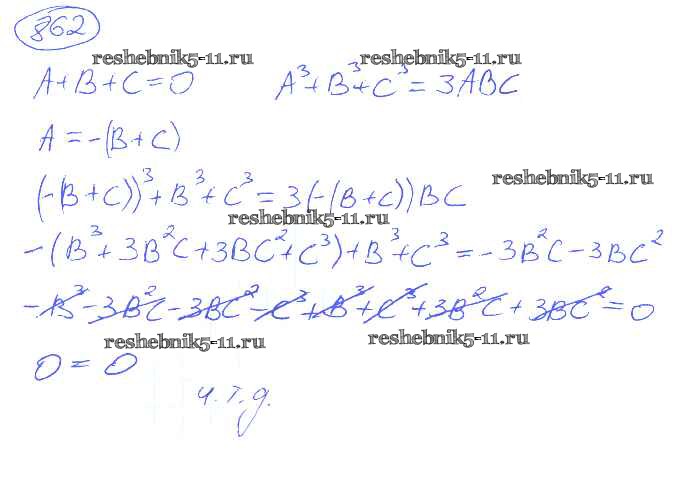 862
reshebnik5-11.ru reshebnik5-11.ru
A+B+C=0 A³+B³+C³=3ABC
A=-(B+C)
reshebnik5-11.ru
(-(B+C))³+B³+C³=3(-(B+C))BC
reshebnik5-11.ru
-(B³+3B²C+3BC²+C³)+B³+C³=-3B²C-3BC²
-B³-3B²C-3BC²-C³+B³+C³+3B²C+3BC²=0
reshebnik5-11.ru reshebnik5-11.ru
0=0
ч.т.д.